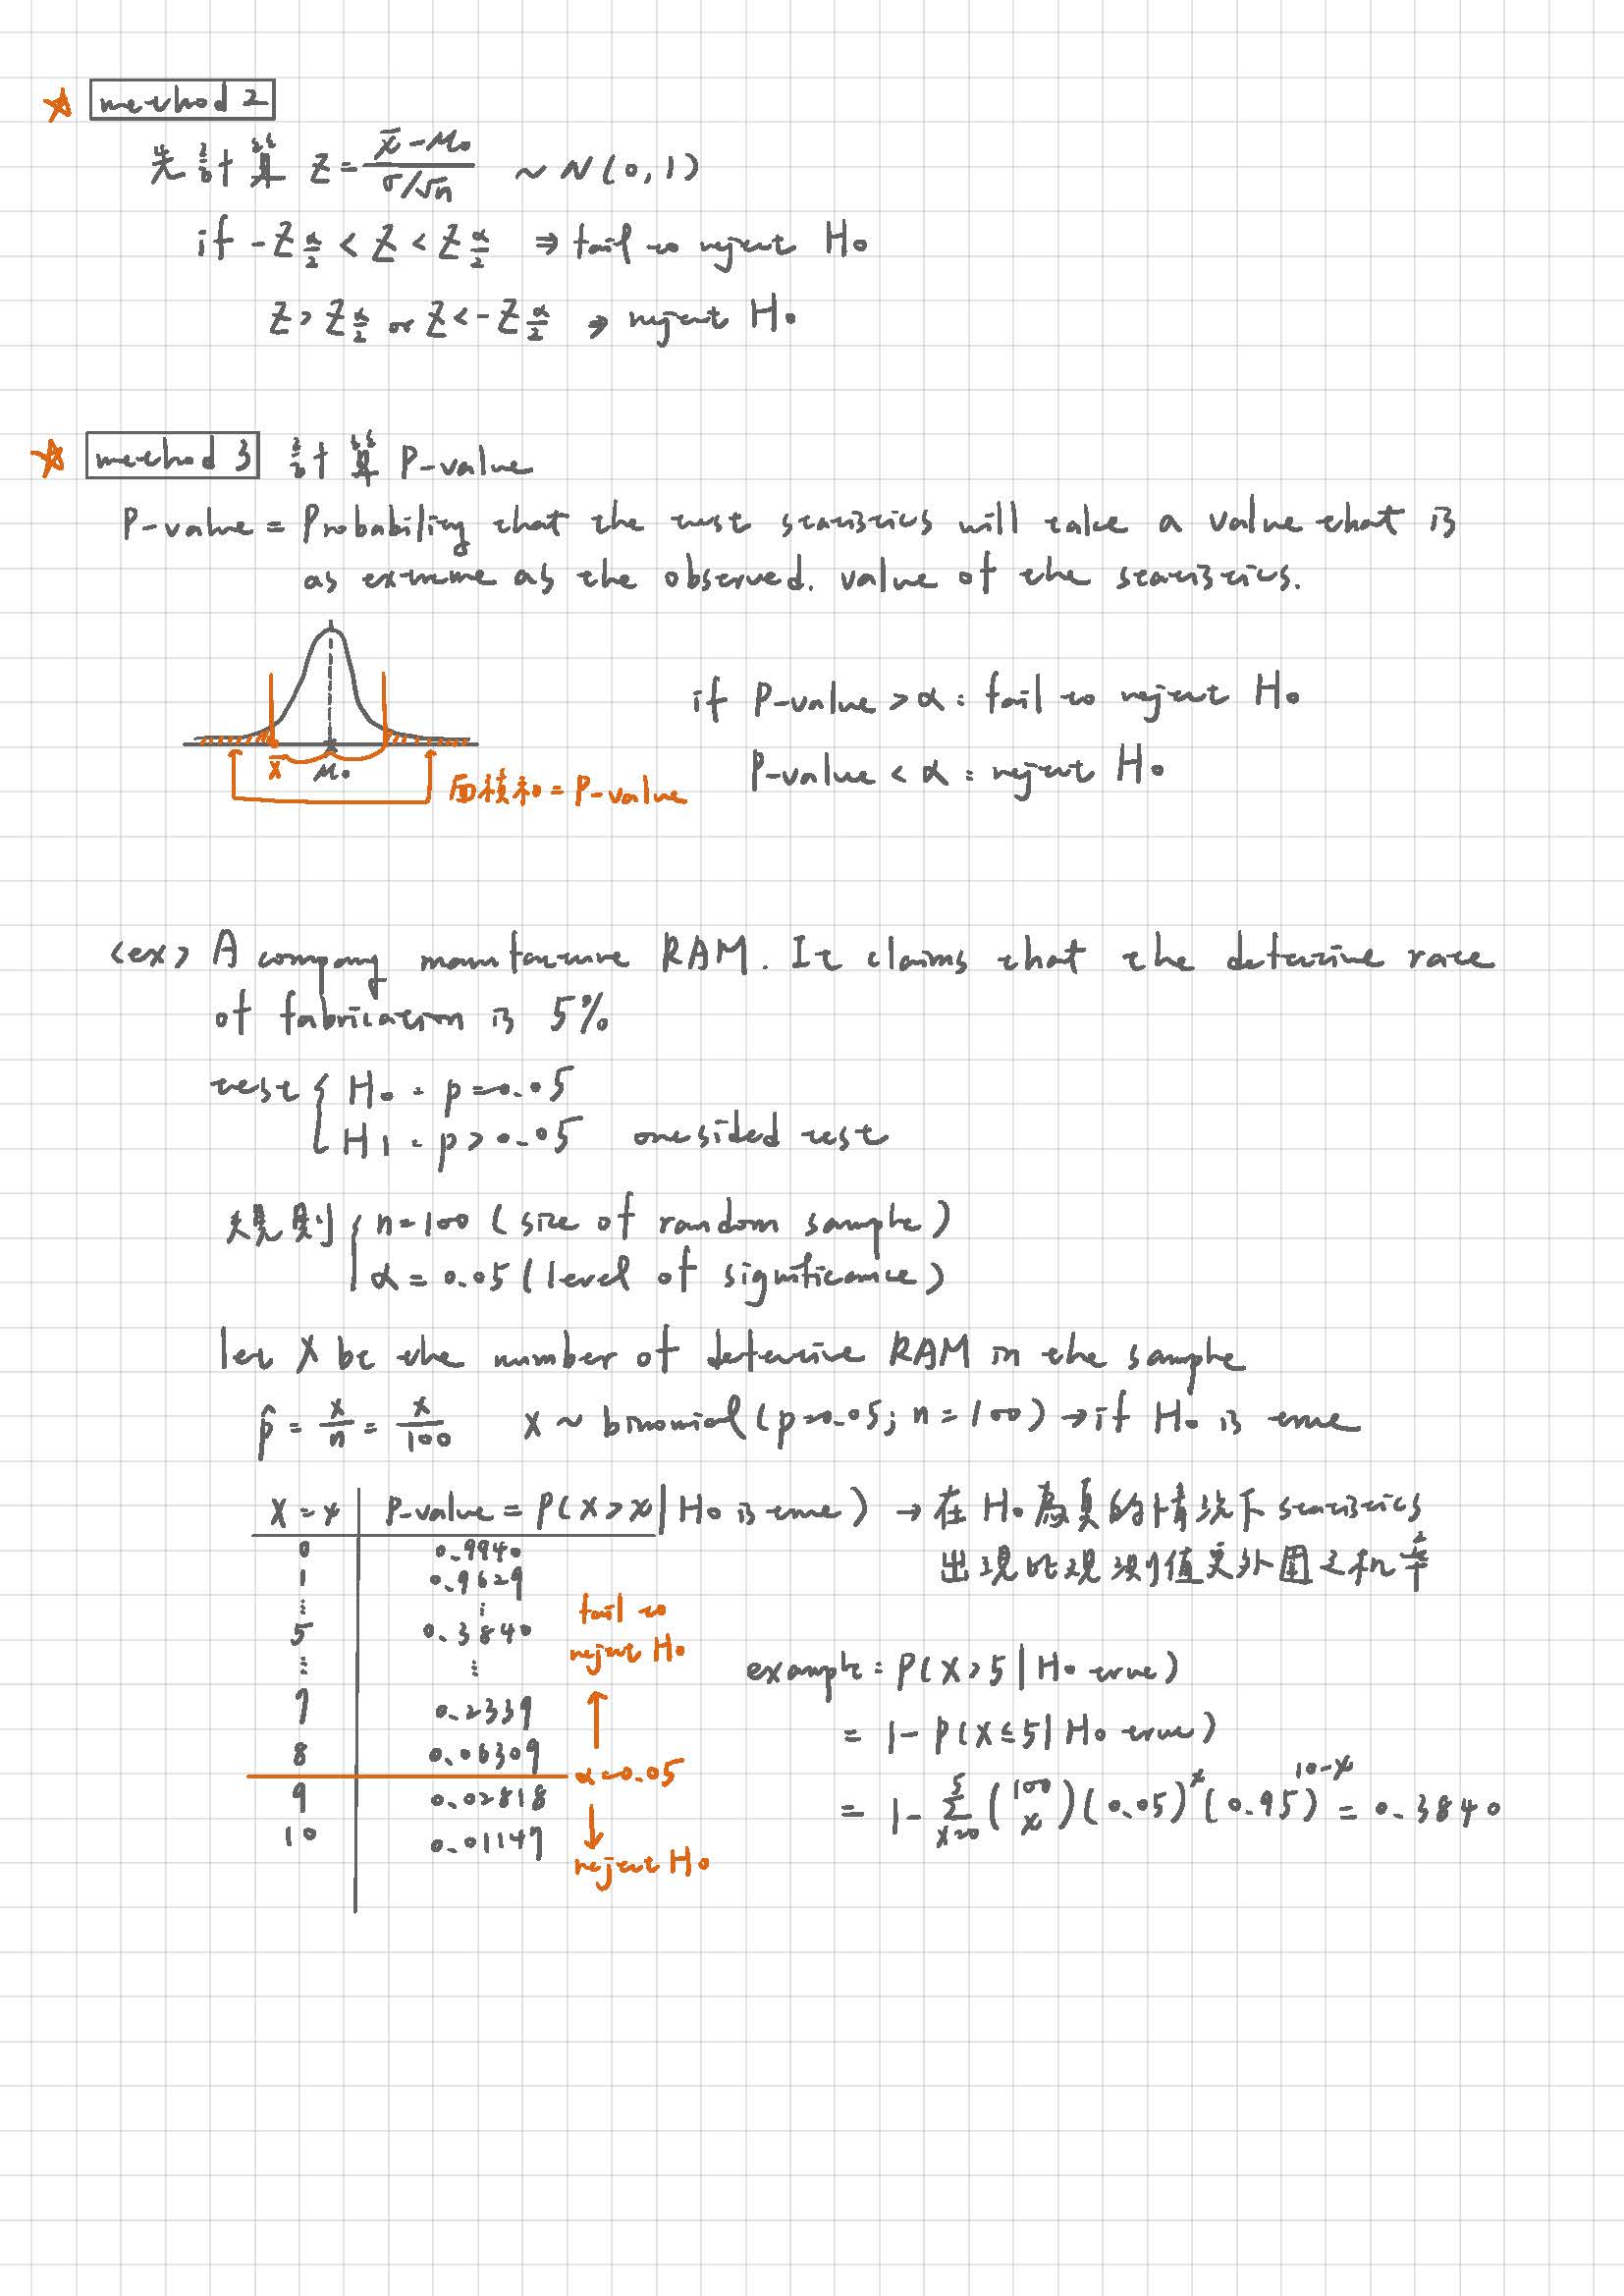 method 2
先計算 Z = (x̄ - μ₀)/(σ/√n) ~ N(0,1)
if -Z_{α/2} < Z < Z_{α/2} ⇒ fail to reject H₀
Z > Z_{α/2} or Z < -Z_{α/2} ⇒ reject H₀
method 3 計算 P-value
P-value = Probability that the test statistics will take a value that is
as extreme as the observed. value of the statistics.
if P-value > α : fail to reject H₀
x̄ μ₀
P-value < α : reject H₀
面積和 = P-value
<ex> A company manufacture RAM. It claims that the defective rate
of fabrication is 5%
test { H₀ : p = 0.05
H1 : p > 0.05 one sided test
規則 { n = 100 (size of random sample)
α = 0.05 (level of significance)
let X be the number of defective RAM in the sample
p̂ = x/n = x/100 X ~ binomial (p=0.05; n=100) → if H₀ is true
X = x P-value = P(X > x | H₀ is true) → 在 H₀ 為真的情況下 statistics
出現比現測值更外圍之机率
0 0.9940
1 0.9629
⋮ ⋮
5 0.3840
⋮ ⋮
7 0.2339
8 0.06309
9 0.02818
10 0.01147
fail to
reject H₀
↑
α=0.05
↓
reject H₀
example : P(X > 5 | H₀ true)
= 1 - P(X ≤ 5 | H₀ true)
= 1 - Σ_{x=0}^{5} (100 x) (0.05)^x (0.95)^{10-x} = 0.3840